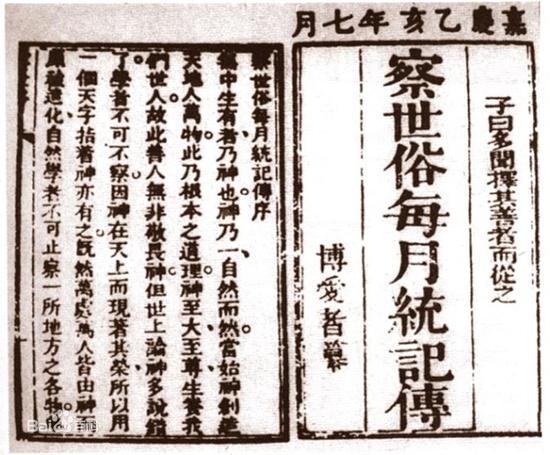 嘉慶乙亥年七月
子曰多聞擇其善者而從之
察世俗每月統記傳
博愛者纂
察世俗每月統記傳序
無中生有者乃神也神乃一自然而然當始神創造
天地人萬物此乃根本之道理神至大至尊生養我
們世人故此善人無非敬畏神但世上論神多說錯
了學者不可不察因神在天上而現著其榮所以用
一個天字指著神亦有之既然萬處萬人皆由神而
原被造化自然學者不可止察一所地方之各物
Baidu百科